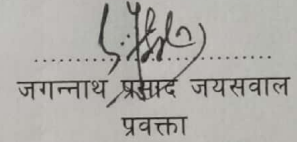 जगन्नाथ प्रसाद जयसवाल
प्रवक्ता